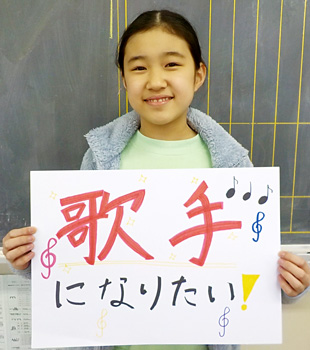 歌手
になりたい!